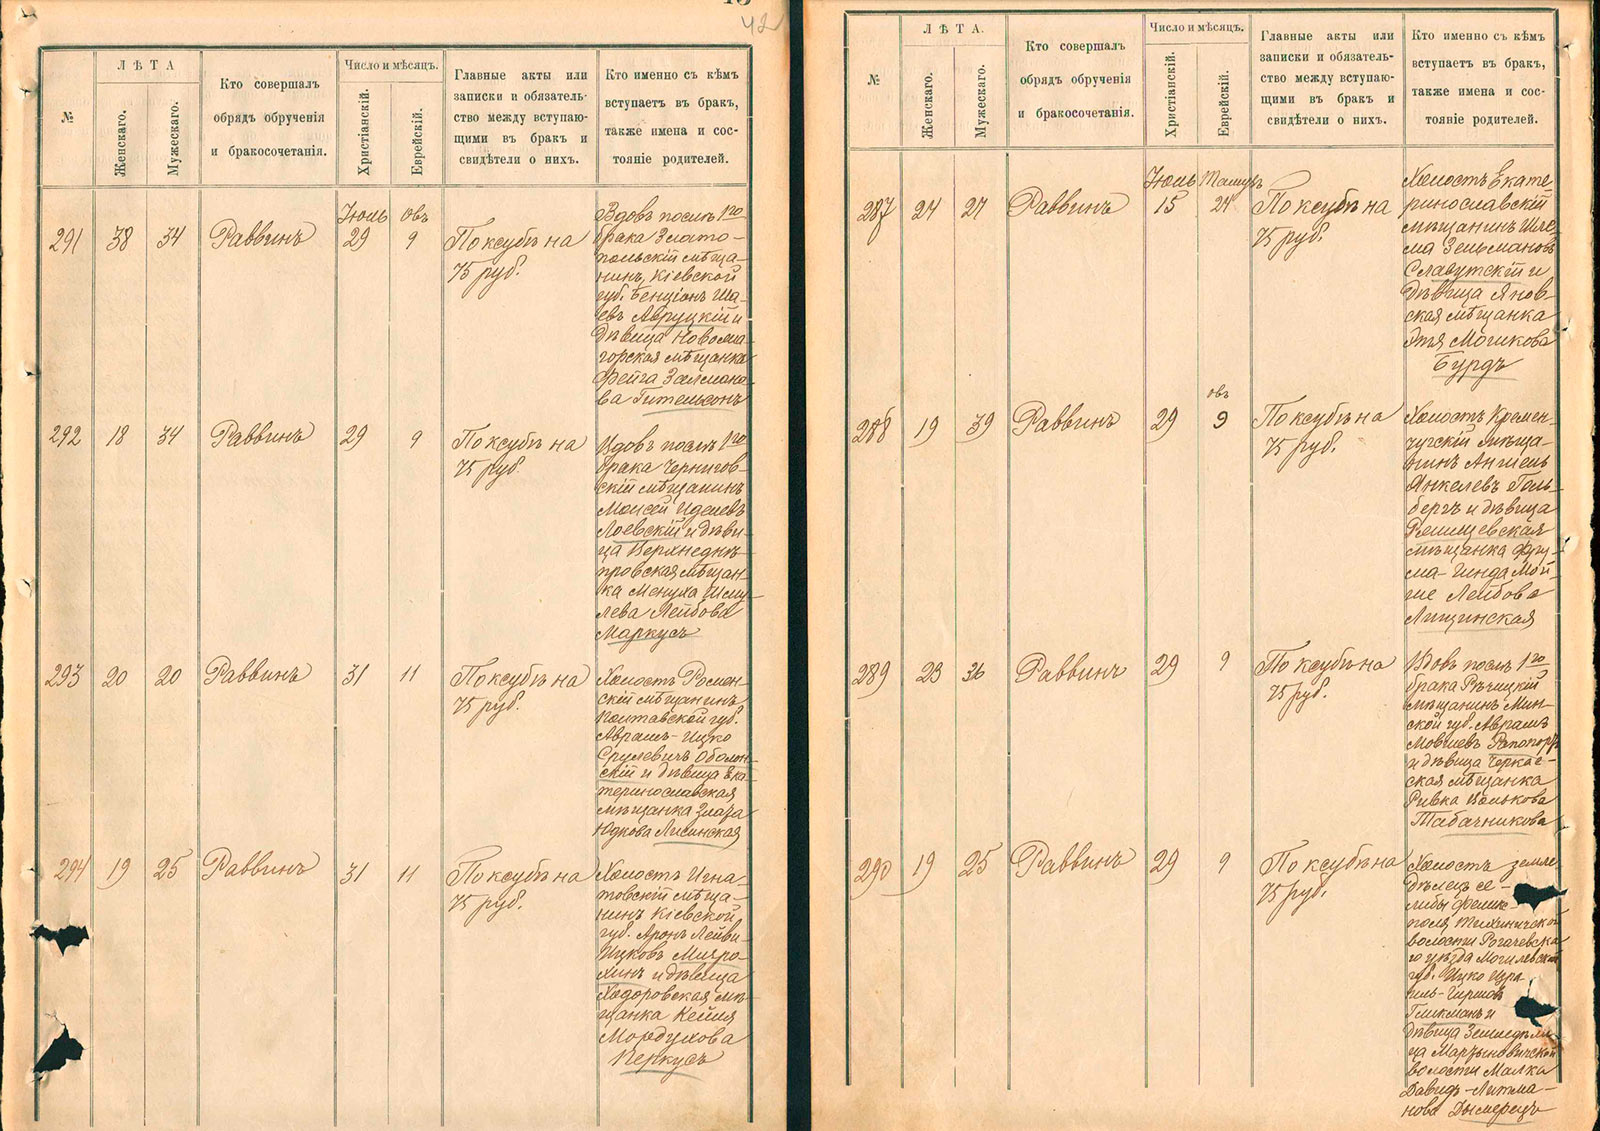 42
№
ЛѢТА
Женскаго.
Мужескаго.
Кто совершалъ
обрядъ обрученія
и бракосочетанія.
Число и мѣсяцъ.
Христіанскій.
Еврейскій.
Главные акты или
записки и обязатель-
ство между вступаю-
щими въ бракъ и
свидѣтели о нихъ.
Кто именно съ кѣмъ
вступаетъ въ бракъ,
также имена и сос-
тояніе родителей.
291 38 34 Раввинъ Іюль 29 овъ 9 По ксубѣ на
75 руб.
Вдовъ послѣ 1го
брака Злато-
польскій мѣща-
нинъ, Кіевской
губ. Бенціонъ Ша-
евъ Авруцкій и
дѣвица Новомир-
городская мѣщанка
Фейга Залмано-
ва Гительсонъ
292 18 34 Раввинъ 29 9 По ксубѣ на
75 руб.
Вдовъ послѣ 1го
брака Чернигов-
скій мѣщанинъ
Моисей Иделевъ
Лоевскій и дѣви-
ца Верхнеднѣ-
провская мѣщан-
ка Менуха Шму-
лева Лейбова
Маркусъ
293 20 20 Раввинъ 31 11 По ксубѣ на
75 руб.
Холостъ Ромен-
скій мѣщанинъ
Полтавской губ.
Аврамъ-Ицко
Срулевичъ Оболон-
скій и дѣвица Ека-
теринославская
мѣщанка Злата
Юдкова Лисинская
294 19 25 Раввинъ 31 11 По ксубѣ на
75 руб.
Холостъ Игна-
товскій мѣща-
нинъ Кіевской
губ. Аронъ Лейви
Ицковъ Миро-
хинъ и дѣвица
Ходоровская мѣ-
щанка Кейля
Мордухова
Перкусъ
№
ЛѢТА.
Женскаго.
Мужескаго.
Кто совершалъ
обрядъ обрученія
и бракосочетанія.
Число и мѣсяцъ.
Христіанскій.
Еврейскій.
Главные акты или
записки и обязатель-
ство между вступаю-
щими въ бракъ и
свидѣтели о нихъ.
Кто именно съ кѣмъ
вступаетъ въ бракъ,
также имена и сос-
тояніе родителей.
287 24 27 Раввинъ Іюль 15 Тамузъ 24 По ксубѣ на
75 руб.
Холостъ Екате-
ринославскій
мѣщанинъ Шле-
ма Зельмановъ
Славутскій и
дѣвица Янов-
ская мѣщанка
Этя Мошкова
Бурдъ
288 19 39 Раввинъ 29 овъ 9 По ксубѣ на
75 руб.
Холостъ Кремен-
чугскій мѣща-
нинъ Аншель
Янкелевъ Голь-
бергъ и дѣвица
мѣщанка Фру-
ма-Гинда Мой-
ше Лейбова
Лищинская
289 23 36 Раввинъ 29 9 По ксубѣ на
75 руб.
Вдовъ послѣ 1го
брака Рѣчицкій
мѣщанинъ Мин-
ской губ. Аврамъ
Мовшевъ Рапопортъ
и дѣвица Черкас-
ская мѣщанка
Ривка Волькова
Табачникова
290 19 25 Раввинъ 29 9 По ксубѣ на
75 руб.
Холостъ земле-
дѣлецъ се-
либы Феликс-
поля Тихиничской
волости Рогачевска-
го уѣзда Могилевской
губ. Ицко Изра-
иль-Гиршовъ
Гликманъ и
дѣвица Земледѣли-
ца Мартыновичской
волости Малка
Давидъ-Литма-
нова Дымерецъ